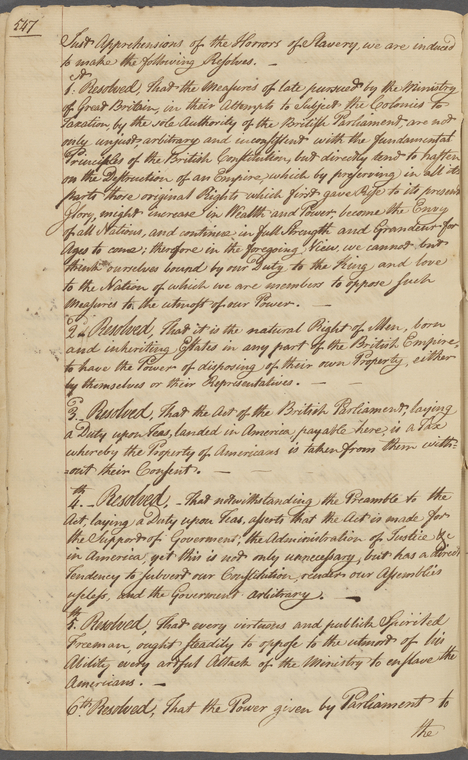 547
Just Apprehensions of the Horrors of Slavery, we are induced
to make the following Resolves. —
1st. Resolved, That the Measures of late pursued by the Ministry
of Great Britain, in their Attempts to Subject the Colonies to
Taxation, by the sole Authority of the British Parliament, are not
only unjust, arbitrary and inconsistent with the fundamental
Principles of the British Constitution, but directly tend to hasten
on the Destruction of an Empire, which by preserving in all its
parts those original Rights which first gave Rise to its present
Glory, might increase in Wealth and Power, become the Envy
of all Nations, and continue in full Strength and Grandeur for
Ages to come; therefore in the foregoing View, we cannot but
think ourselves bound by our Duty to the King and love
to the Nation of which we are members to oppose such
Measures to the utmost of our Power. —
2d. Resolved, That it is the natural Right of Men, born
and inheriting Estates in any part of the British Empire,
to have the Power of disposing of their own Property, either
by themselves or their Representatives. — —
3d. Resolved, That the Act of the British Parliament, laying
a Duty upon Teas, landed in America, payable here, is a Tax
whereby the Property of Americans is taken from them with=
=out their Consent. — — —
4th. — Resolved, — That notwithstanding the Preamble to the
Act, laying a Duty upon Teas, asserts that the Act is made for
the Support of Government, the Administration of Justice &c
in America, yet this is not only unnecessary, but has a direct
Tendency to subvert our Constitution, render our Assemblies
useless, and the Goverment arbitrary. —
5th. Resolved, That every virtuous and publick Spirited
Freeman, ought steadily to oppose to the utmost of his
Ability, every artful Attack of the Ministry to enslave the
Americans. —
6th. Resolved, That the Power given by Parliament to
the